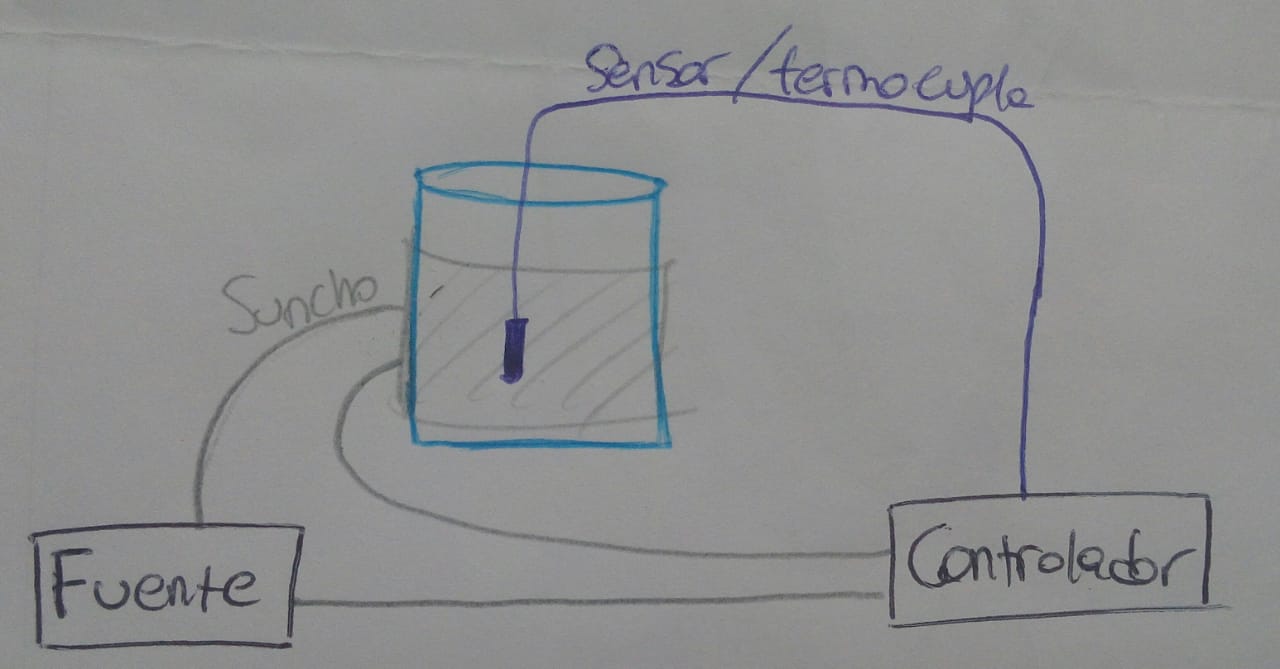 Sensor/termocupla
Suncho
Fuente
Controlador